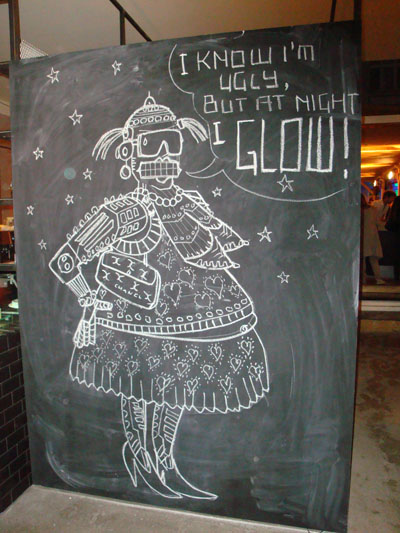 I KNOW I'M
UGLY,
BUT AT NIGHT
I GLOW!